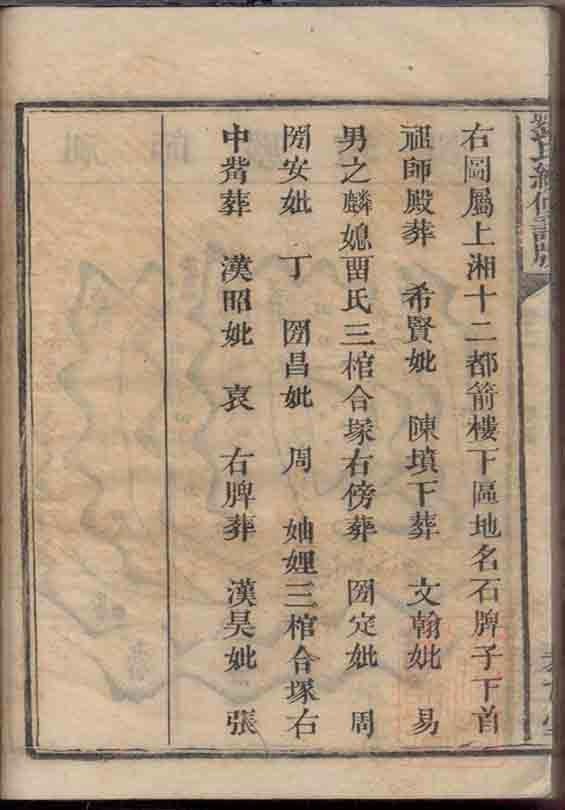 氏續修譜牒
右圖屬上湘十二都箭樓下區地名石脾子下首
祖師殿葬 希賢妣 陳墳下葬 文翰妣 易
男之麟媳畱氏三棺合塚右傍葬 圀定妣 周
圀安妣 丁 圀昌妣 周 妯娌三棺合塚右
中觜葬 漢昭妣 哀 右脾葬 漢昊妣 張